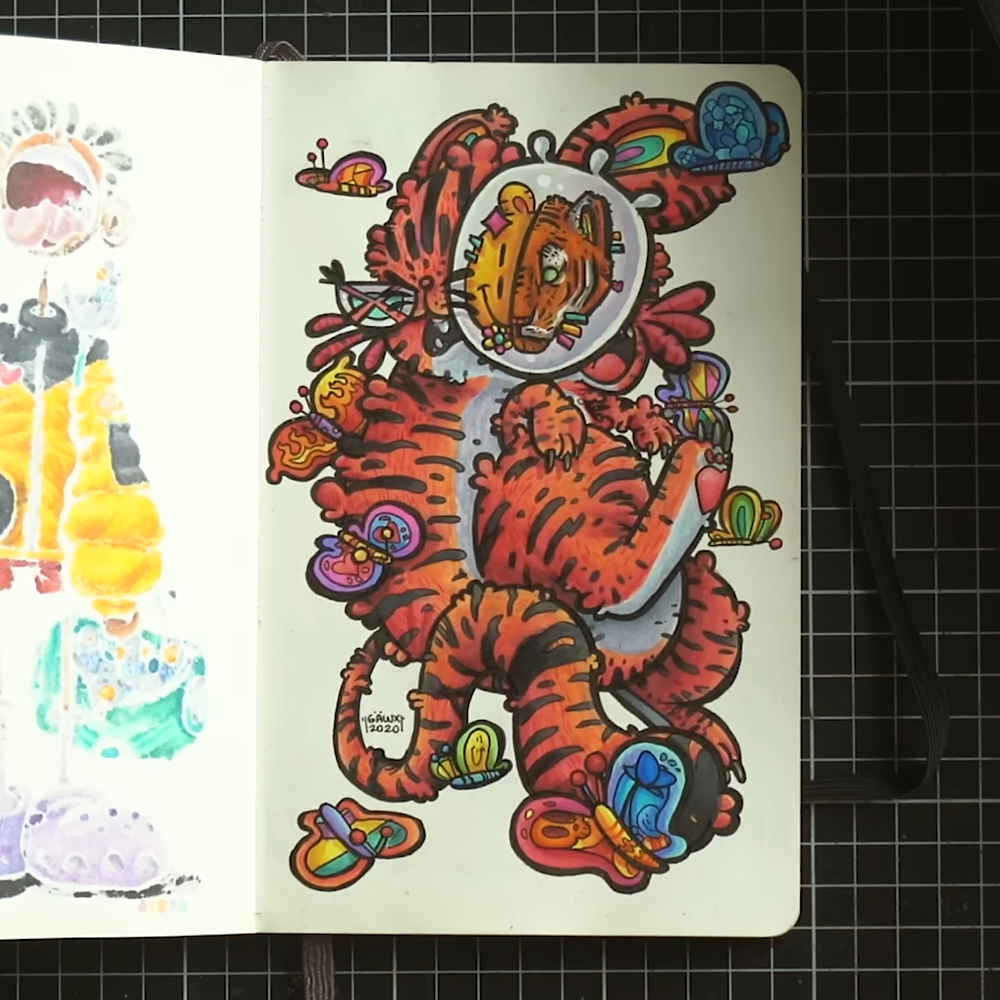 GÄWX
2020